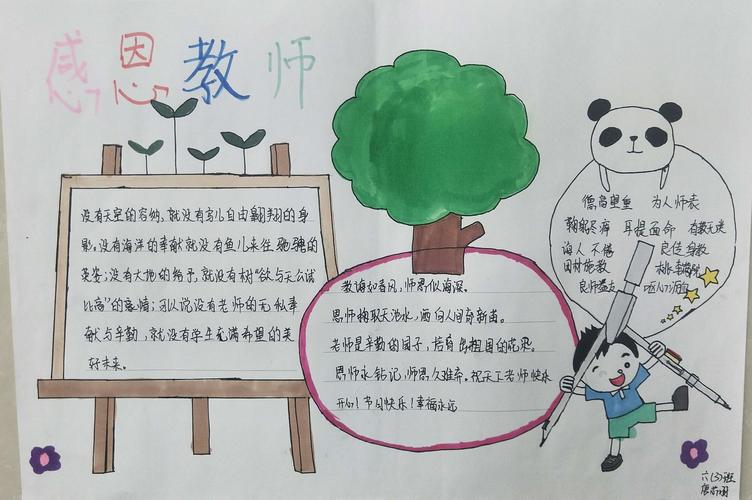 感恩教师
没有天空的容纳,就没有鸟儿自由翱翔的身
影;没有海洋的奉献就没有鱼儿来往驰骋的
英姿;没有大地的给予,就没有树“欲与天公试
比高”的豪情;可以说没有老师的无私奉
献与辛勤,就没有学生充满希望的美
好未来。
教诲如春风,师恩似海深。
恩师掬取天池水,洒向人间育新苗。
老师是辛勤的园丁,培育祖国的花朵。
恩师永钻记,师恩久难弃。祝天下老师快乐
开心!节日快乐!幸福永远
德高望重 为人师表
鞠躬尽瘁 耳提面命 有教无类
诲人不倦 良师身教
因材施教 桃李满院
良师益友
六(3)班